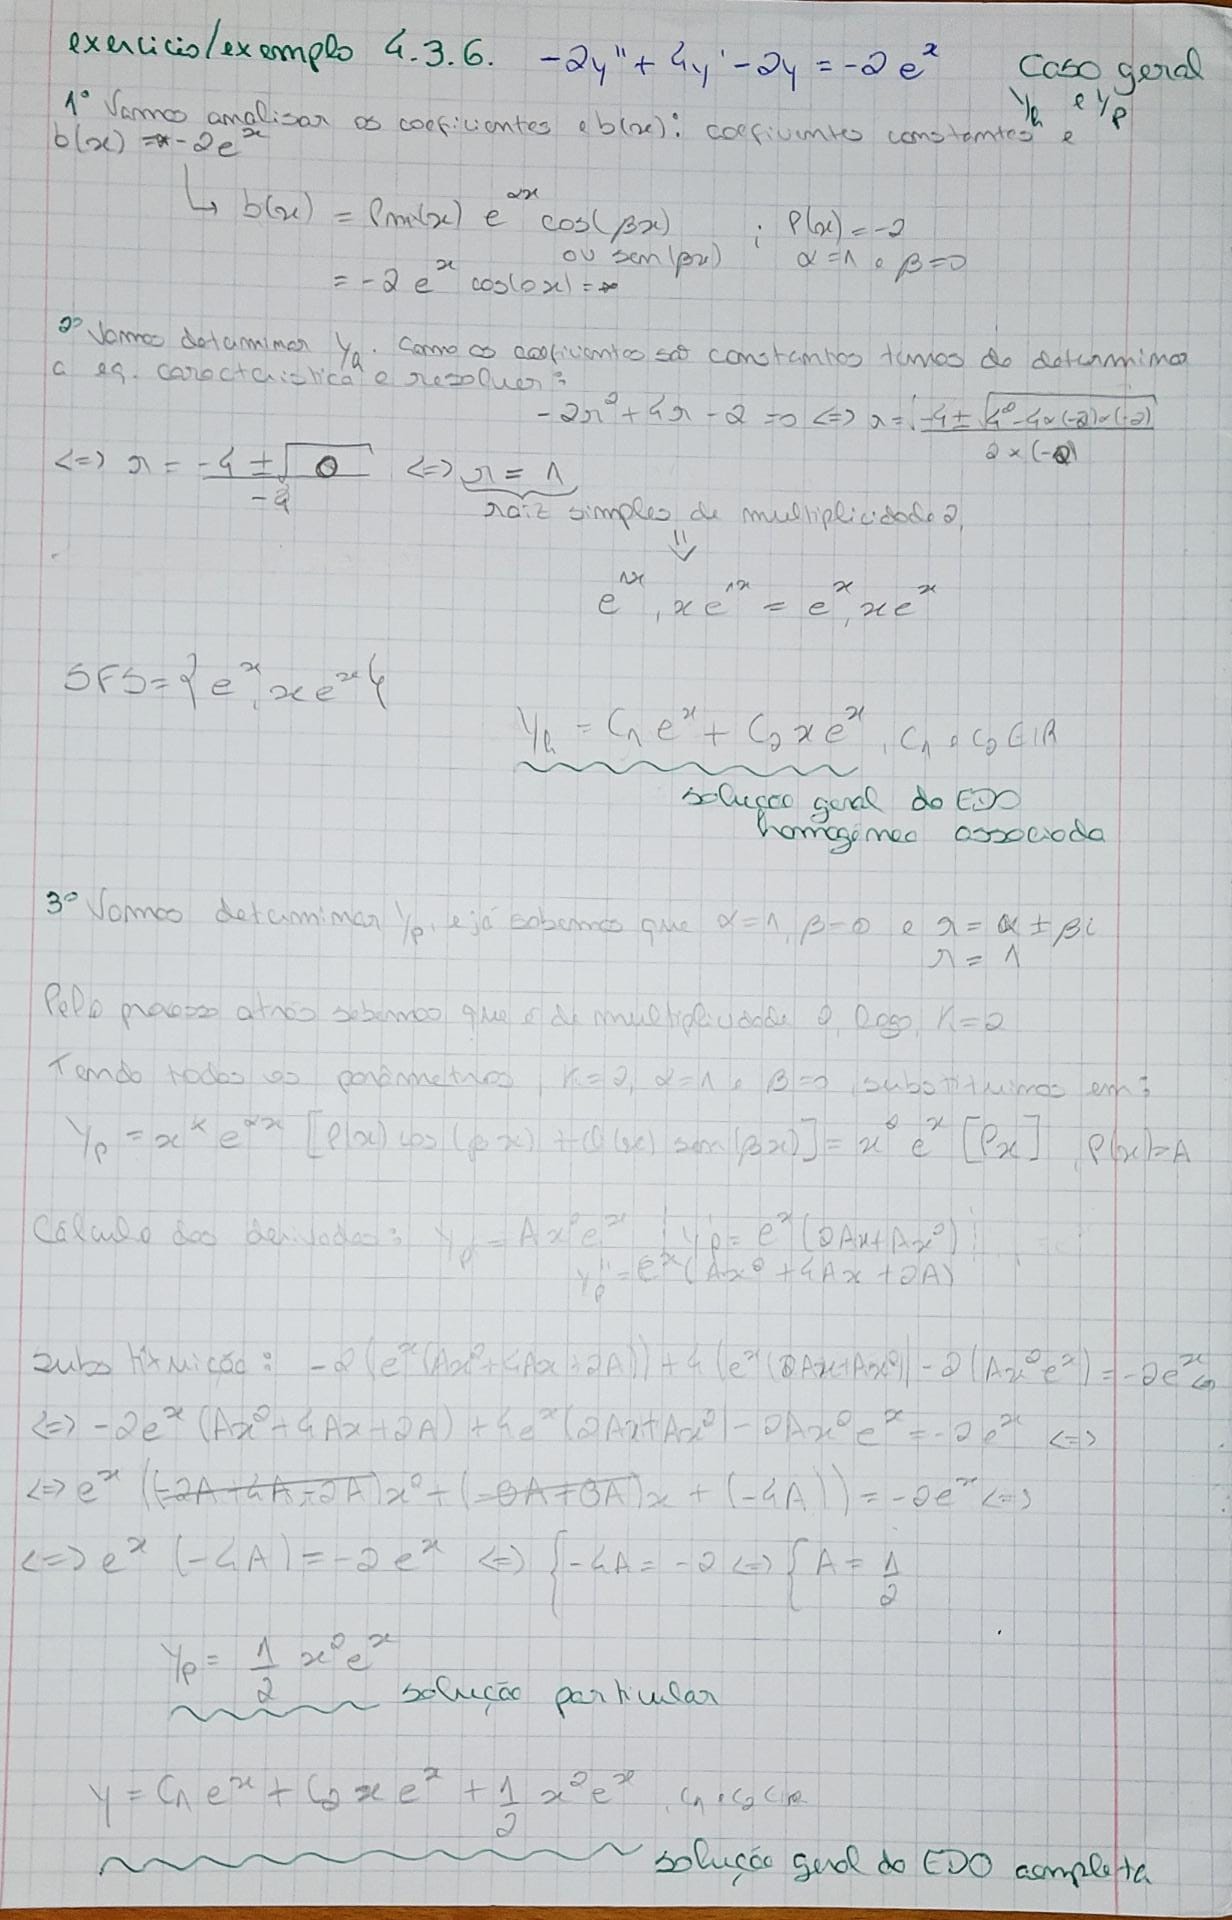 exercicio/exemplo 4.3.6. -2y'' + 4y' - 2y = -2e^x Caso geral
y_h e y_p
1º Vamos analisar os coeficientes e b(x): coeficientes constantes e
b(x) = -2e^x
↳ b(x) = Pm(x) e^{αx} cos(βx) ; P(x) = -2
ou sen(βx) α=1 e β=0
= -2 e^x cos(0x) =
2º Vamos determinar y_h. Como os coeficientes são constantes temos de determinar
a eq. caracteristica e resolver:
-2r² + 4r - 2 = 0 <=> r = (-4 ± √(4² - 4×(-2)×(-2))) / (2×(-2))
<=> r = (-4 ± √0) / -4 <=> r = 1
raiz simples de multiplicidade 2,
⇓
e^{1x}, xe^{1x} = e^x, xe^x
SFS = {e^x, xe^x}
y_h = C1 e^x + C2 x e^x, C1 e C2 ∈ IR
solução geral da EDO
homogénea associada
3º Vamos determinar y_p, e já sabemos que α=1, β=0 e r = α ± βi
r = 1
Pelo processo atrás sabemos que é de multiplicidade 2, logo, K=2
Tendo todos os parâmetros, K=2, α=1 e β=0, substituimos em:
y_p = x^k e^{αx} [P(x) cos(βx) + Q(x) sen(βx)] = x² e^x [Px] , P(x)=A
Cálculo das derivadas: y_p = Ax²e^x ¦ y_p' = e^x (2Ax + Ax²) ¦
y_p'' = e^x (Ax² + 4Ax + 2A)
Substituição: -2(e^x (Ax² + 4Ax + 2A)) + 4(e^x (2Ax + Ax²)) - 2(Ax²e^x) = -2e^x <=>
<=> -2e^x (Ax² + 4Ax + 2A) + 4e^x (2Ax + Ax²) - 2Ax²e^x = -2e^x <=>
<=> e^x ((-2A + 4A - 2A)x² + (-8A + 8A)x + (-4A)) = -2e^x <=>
<=> e^x (-4A) = -2e^x <=> { -4A = -2 <=> { A = 1/2
y_p = 1/2 x²e^x
solução particular
y = C1 e^x + C2 x e^x + 1/2 x²e^x, C1 e C2 ∈ IR
solução geral da EDO completa